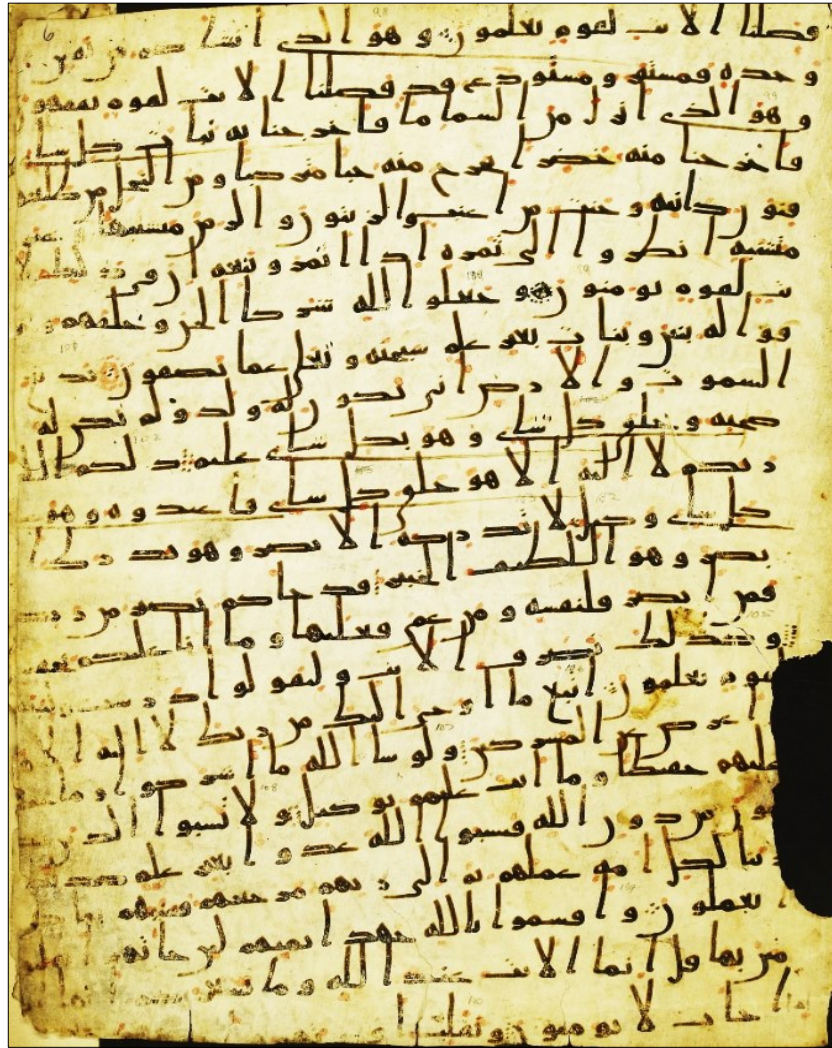 فصلنا الايت لقوم يعلمون وهو الذي انشاكم من نفس
وحده فمستقر ومستودع قد فصلنا الايت لقوم يفقهون
وهو الذي انزل من السما ما فاخرجنا به نبات كل شاي
فاخرجنا منه خضرا نخرج منه حبا متركبا ومن النخل من طلعها
قنون دانيه وجنت من اعنب والزيتون والرمن مشتبها وغير
متشبه انظروا الى ثمره اذا اثمر وينعه ان في ذلكم لا
يت لقوم يومنون وجعلوا لله شركا الجن وخلقهم و
خرقوا له بنين وبنات بغير علم سبحنه وتعلى عما يصفون بديع
السموت والارض انى يكون له ولد ولم تكن له
صحبه وخلق كل شاي وهو بكل شاي عليم ذلكم الله
ربكم لا اله الا هو خلق كل شاي فاعبدوه وهو
كل شاي وكيل لا تدركه الابصر وهو يدرك ا
بصر وهو اللطيف الخبير قد جاكم بصر من ربكم
فمن ابصر فلنفسه ومن عمي فعليها وما انا عليكم بحفيظ
وكذلك نصرف الايت وليقولوا درست ولنبينه
لقوم يعلمون اتبع ما اوحي اليك من ربك لا اله الا
واعرض عن المشركين ولو شا الله ما اشركوا وما
عليهم حفيظا وما انت عليهم بوكيل ولا تسبوا الذين
يدعون من دون الله فيسبوا الله عدوا بغير علم كذلك
زينا لكل امه عملهم ثم الى ربهم مرجعهم فينبهم بما كا
نوا يعملون واقسموا بالله جهد ايمنهم لئن جاتهم
منن بها قل انما الايت عند الله وما يشعركم انها
اذا جات لا يومنون ونقلب ا